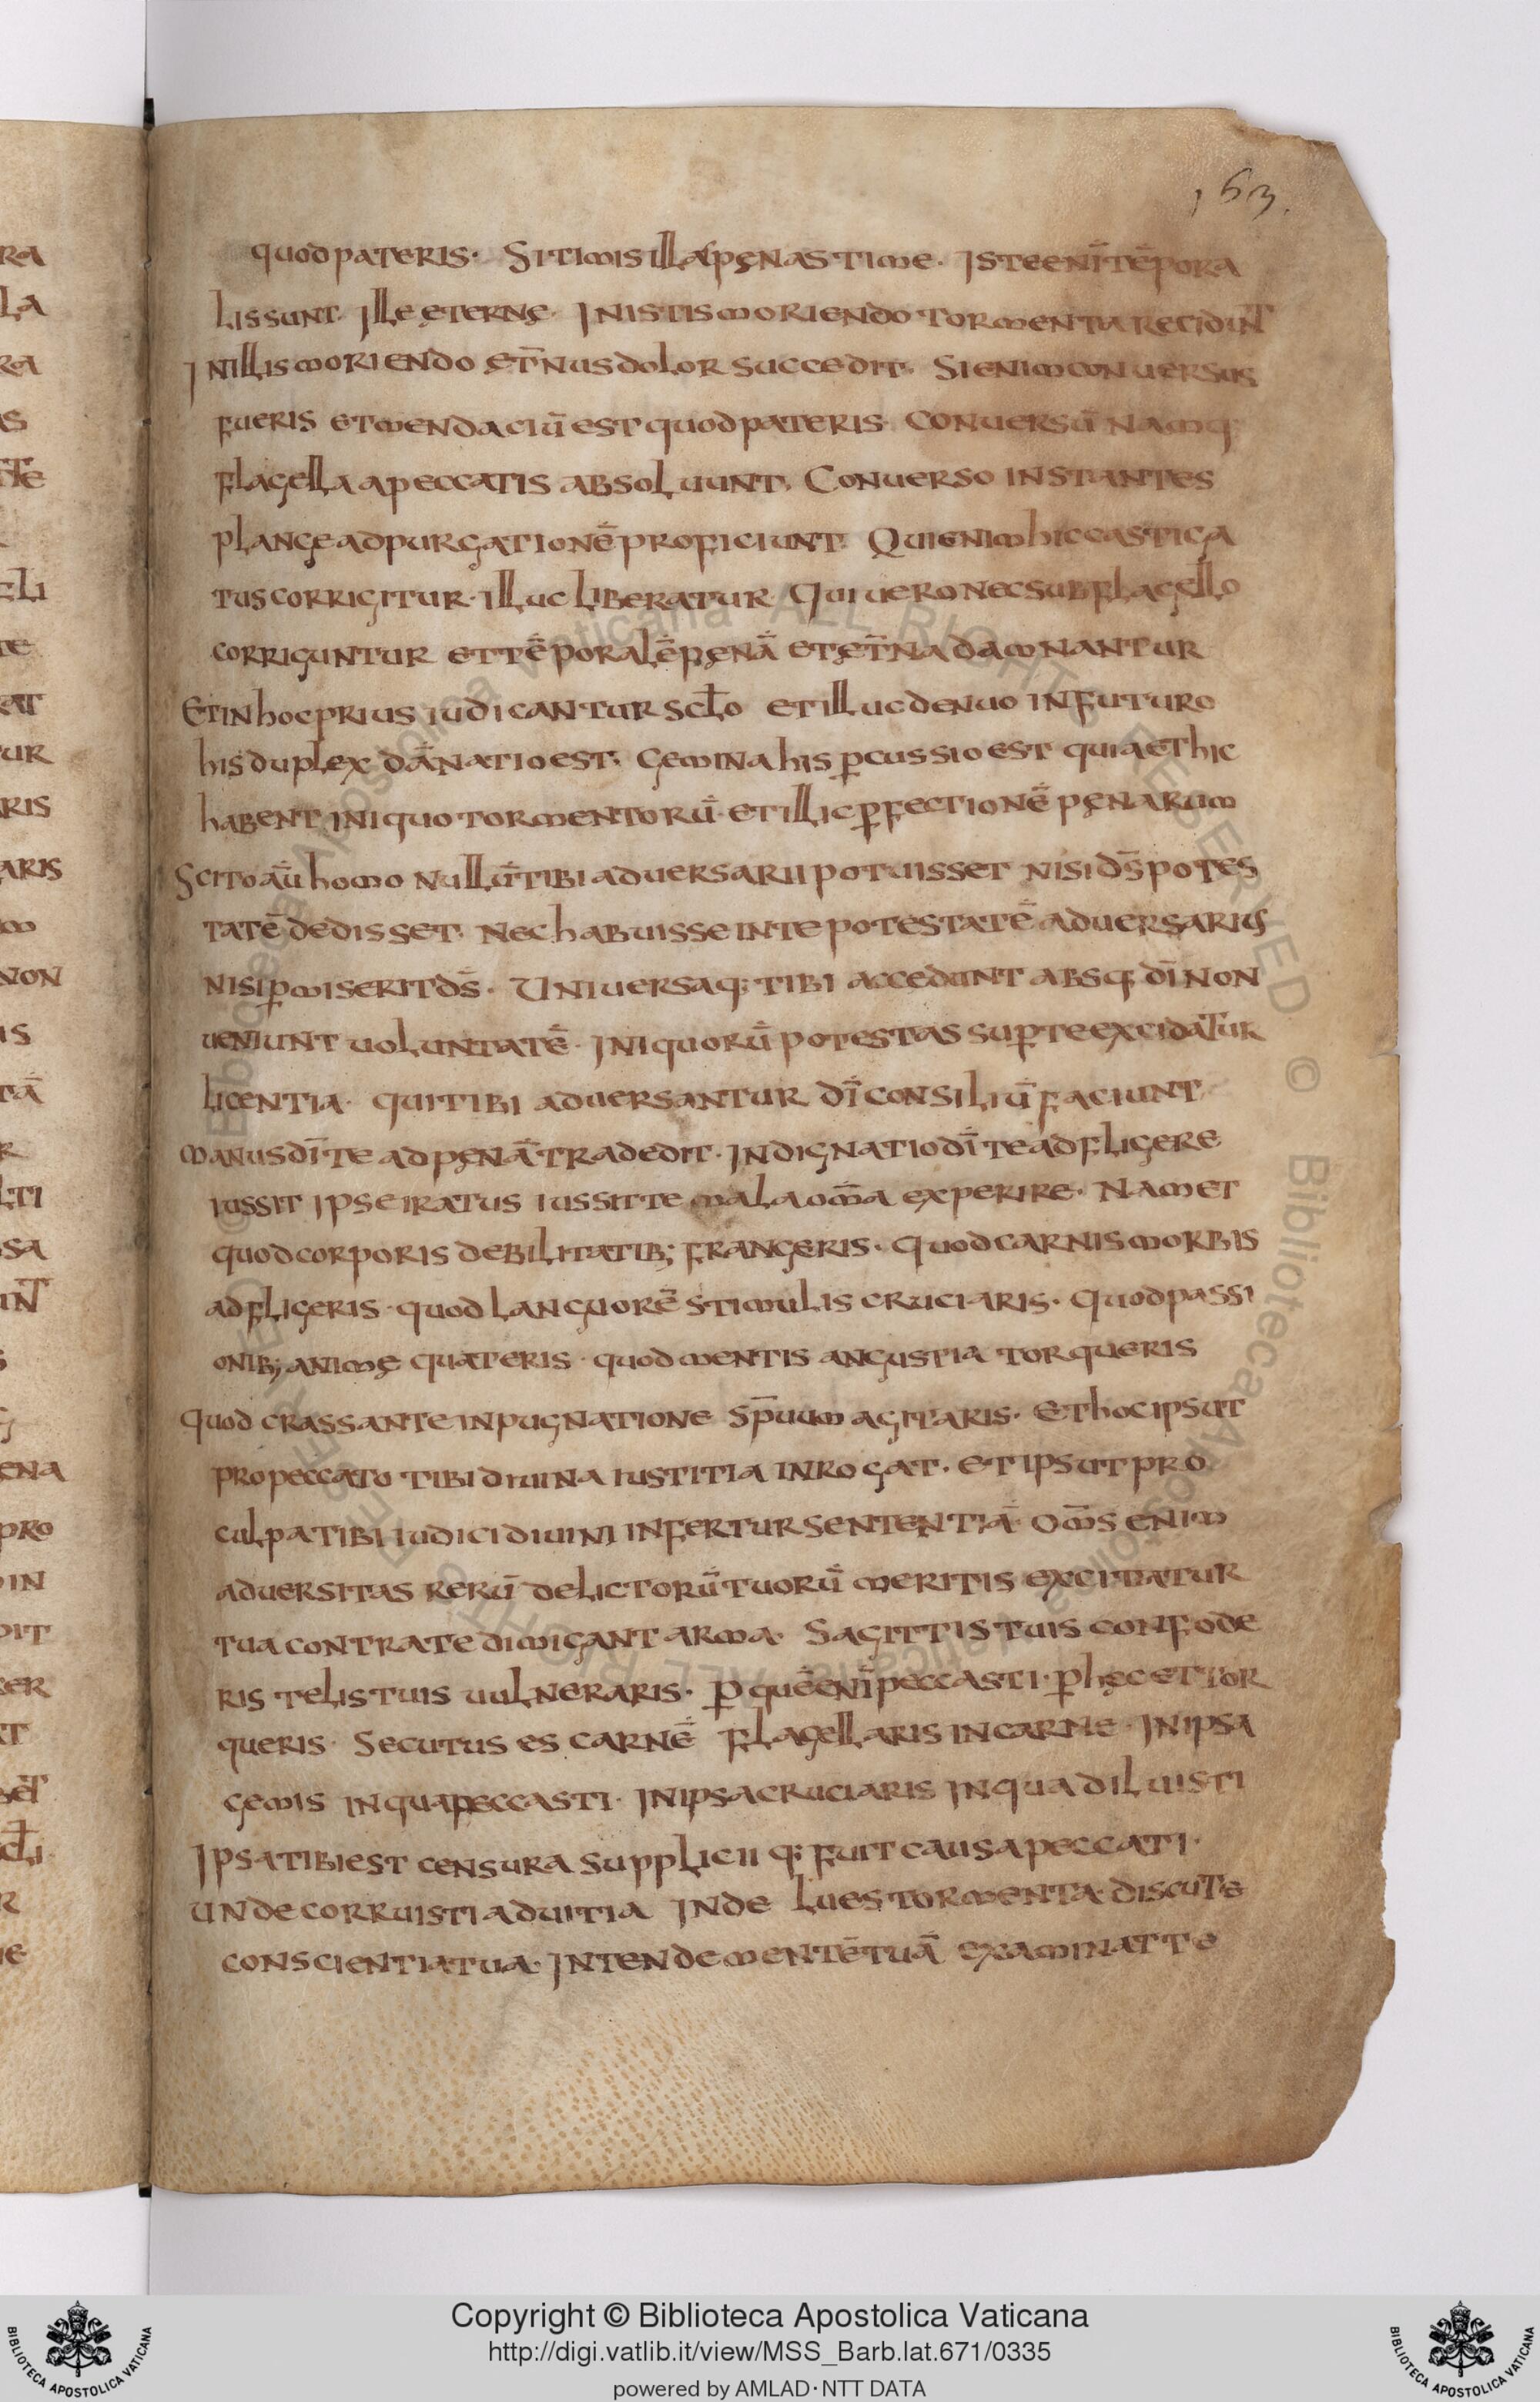 163.
quod pateris. Si timis illas pęnas time. Iste enī tēpora
lis sunt. Ille ęternę. In istis moriendo tormenta recidunt
In illis moriendo ęt̄nus dolor succedit. Si enim conuersus
fueris et mendaciū est quod pateris. Conuersū namq;
flagella a peccatis absoluunt. Conuerso instantes
plangę ad purgationē proficiunt. Qui enim hic castiga
tus corrigitur. illuc liberatur. Qui uero nec sub flagello
corriguntur et tēporalē pęnā et ęt̄na damnantur
Et in hoc prius iudicantur scłō et illuc denuo in futuro
his duplex dānatio est. gemina his p̄cussio est quia et hic
habent iniquo tormentorū. et illic p̄fectionē pęnarum
Scito aū homo nullū tibi aduersarii potuisset nisi ds̄ potes
tatē dedisset. Nec habuisse in te potestatē aduersarius
nisi p̄miserit ds̄. Uniuersaq; tibi accedunt absq; dī non
ueniunt uoluntatē. Iniquorū potestas sup̄ te ex ci datur
licentia. qui tibi aduersantur dī consiliū faciunt
manus dī te ad pęnā tradedit. Indignatio dī te adfligere
iussit ipse iratus iussit te mala om̄a experire. Nam et
quod corporis debilitatib; frangeris. quod carnis morbis
adfligeris. quod languorē stimulis cruciaris. quod passi
onib; animę quateris. quod mentis angustia torqueris
quod crassante inpugnatione sp̄uum agitaris. Et hoc ipsut
pro peccato tibi diuina iustitia inrogat. et ipsut pro
culpa tibi iudici diuini infertur sententiā. Om̄s enim
aduersitas rerū delictorū tuorū meritis excitatur
tua contra te dimigant arma. Sagittis tuis confode
ris telis tuis uulneraris. p̄ quē enī peccasti. p̄ hęc et tor
queris. Secutus es carnē flagellaris in carne. In ipsa
gemis in qua peccasti. In ipsa cruciaris in qua diluisti
Ipsa tibi est censura supplicii q; fuit causa peccati.
Unde corruisti ad uitia inde lues tormenta. discute
conscientia tua. Intende mentē tuā examinat te
Copyright © Biblioteca Apostolica Vaticana
http://digi.vatlib.it/view/MSS_Barb.lat.671/0335
powered by AMLAD·NTT DATA